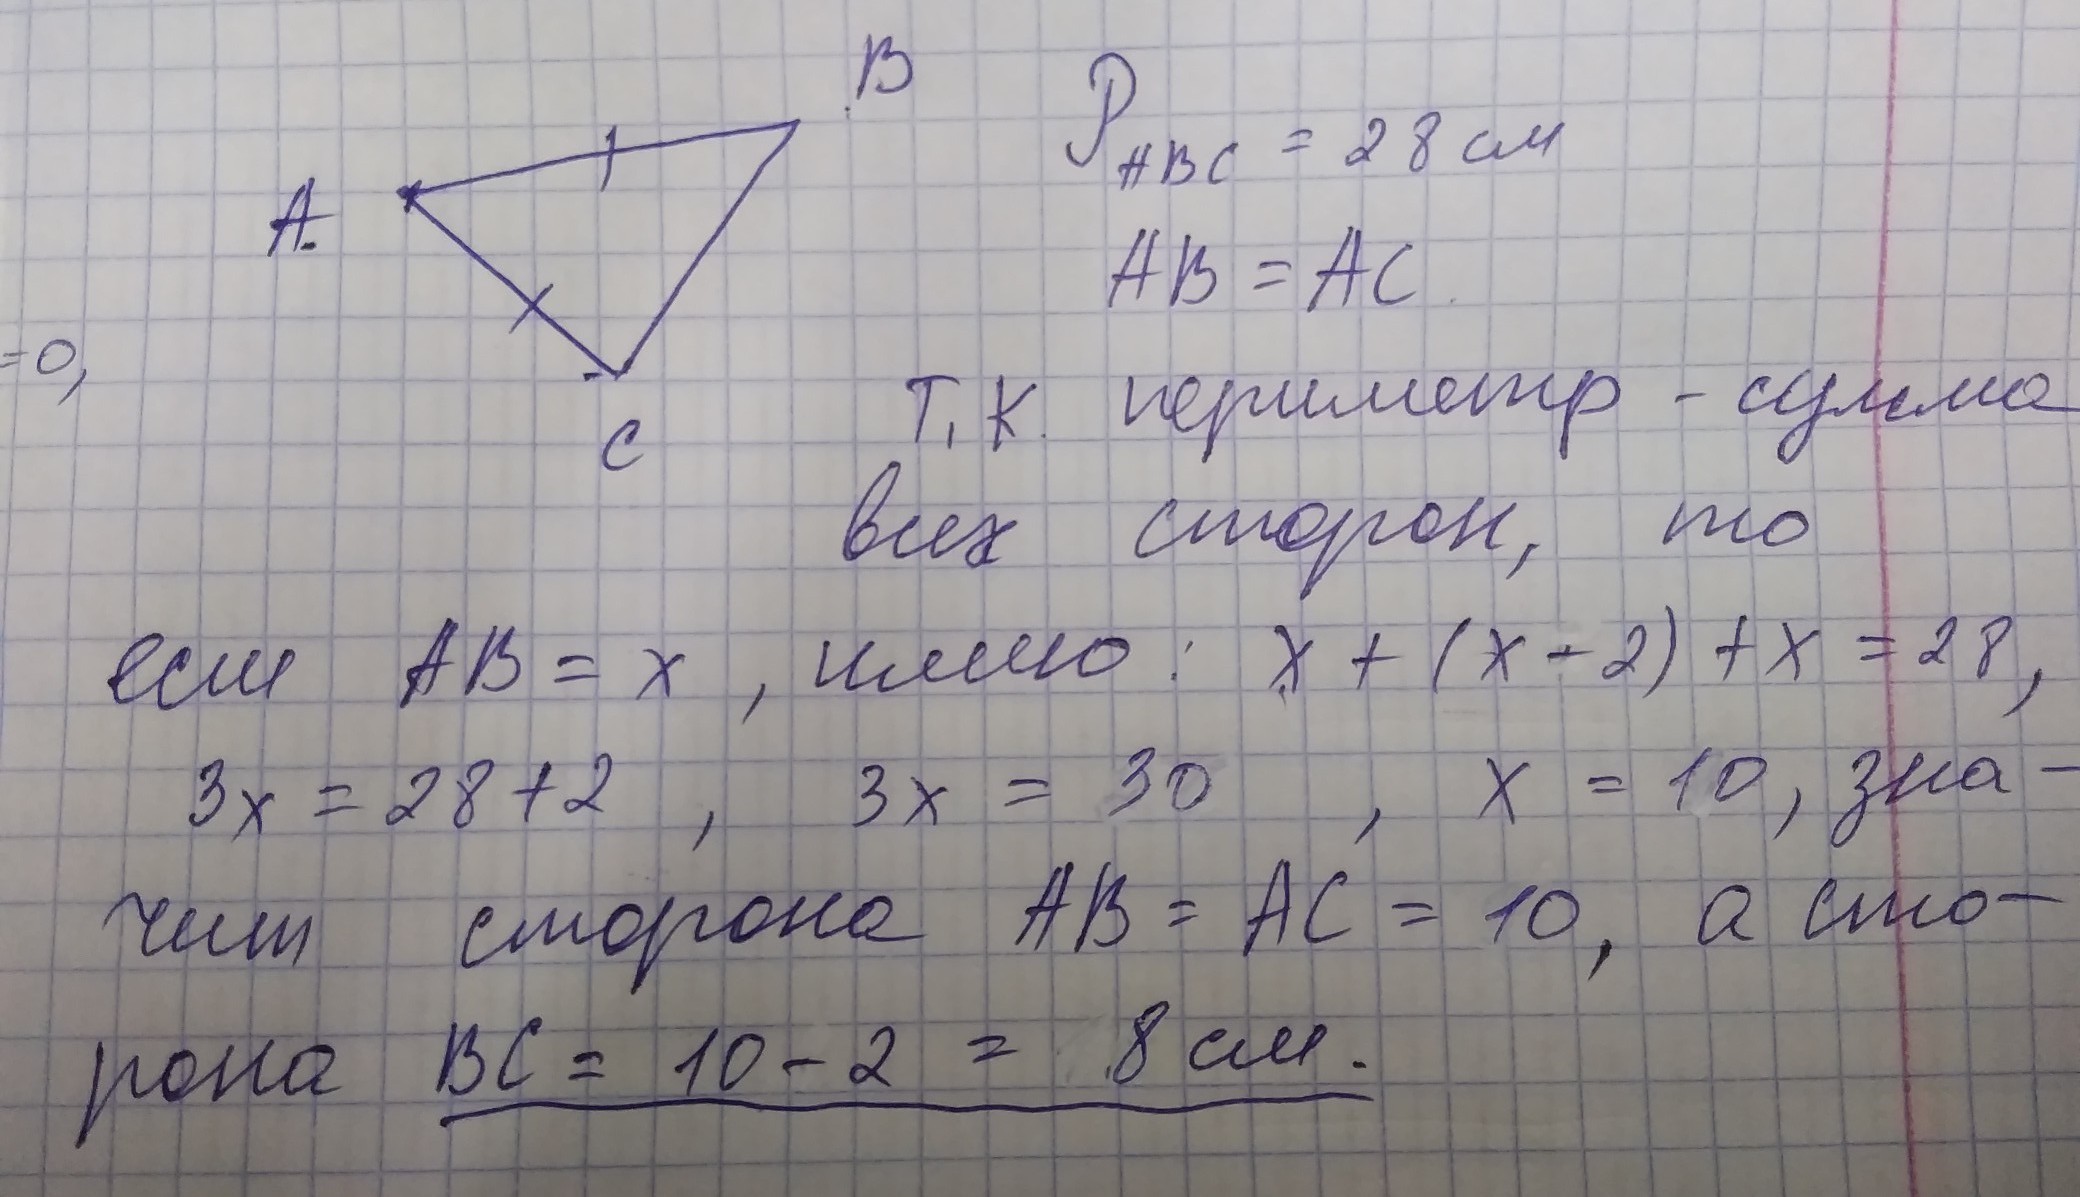 B
A
C
=0,
P ABC = 28 см
AB = AC
Т.к. периметр - сумма
всех сторон, то
если AB = x, имею: x + (x - 2) + x = 28,
3x = 28+2, 3x = 30, x = 10, зна-
чит сторона AB = AC = 10, а сто-
рона BC = 10 - 2 = 8 см.